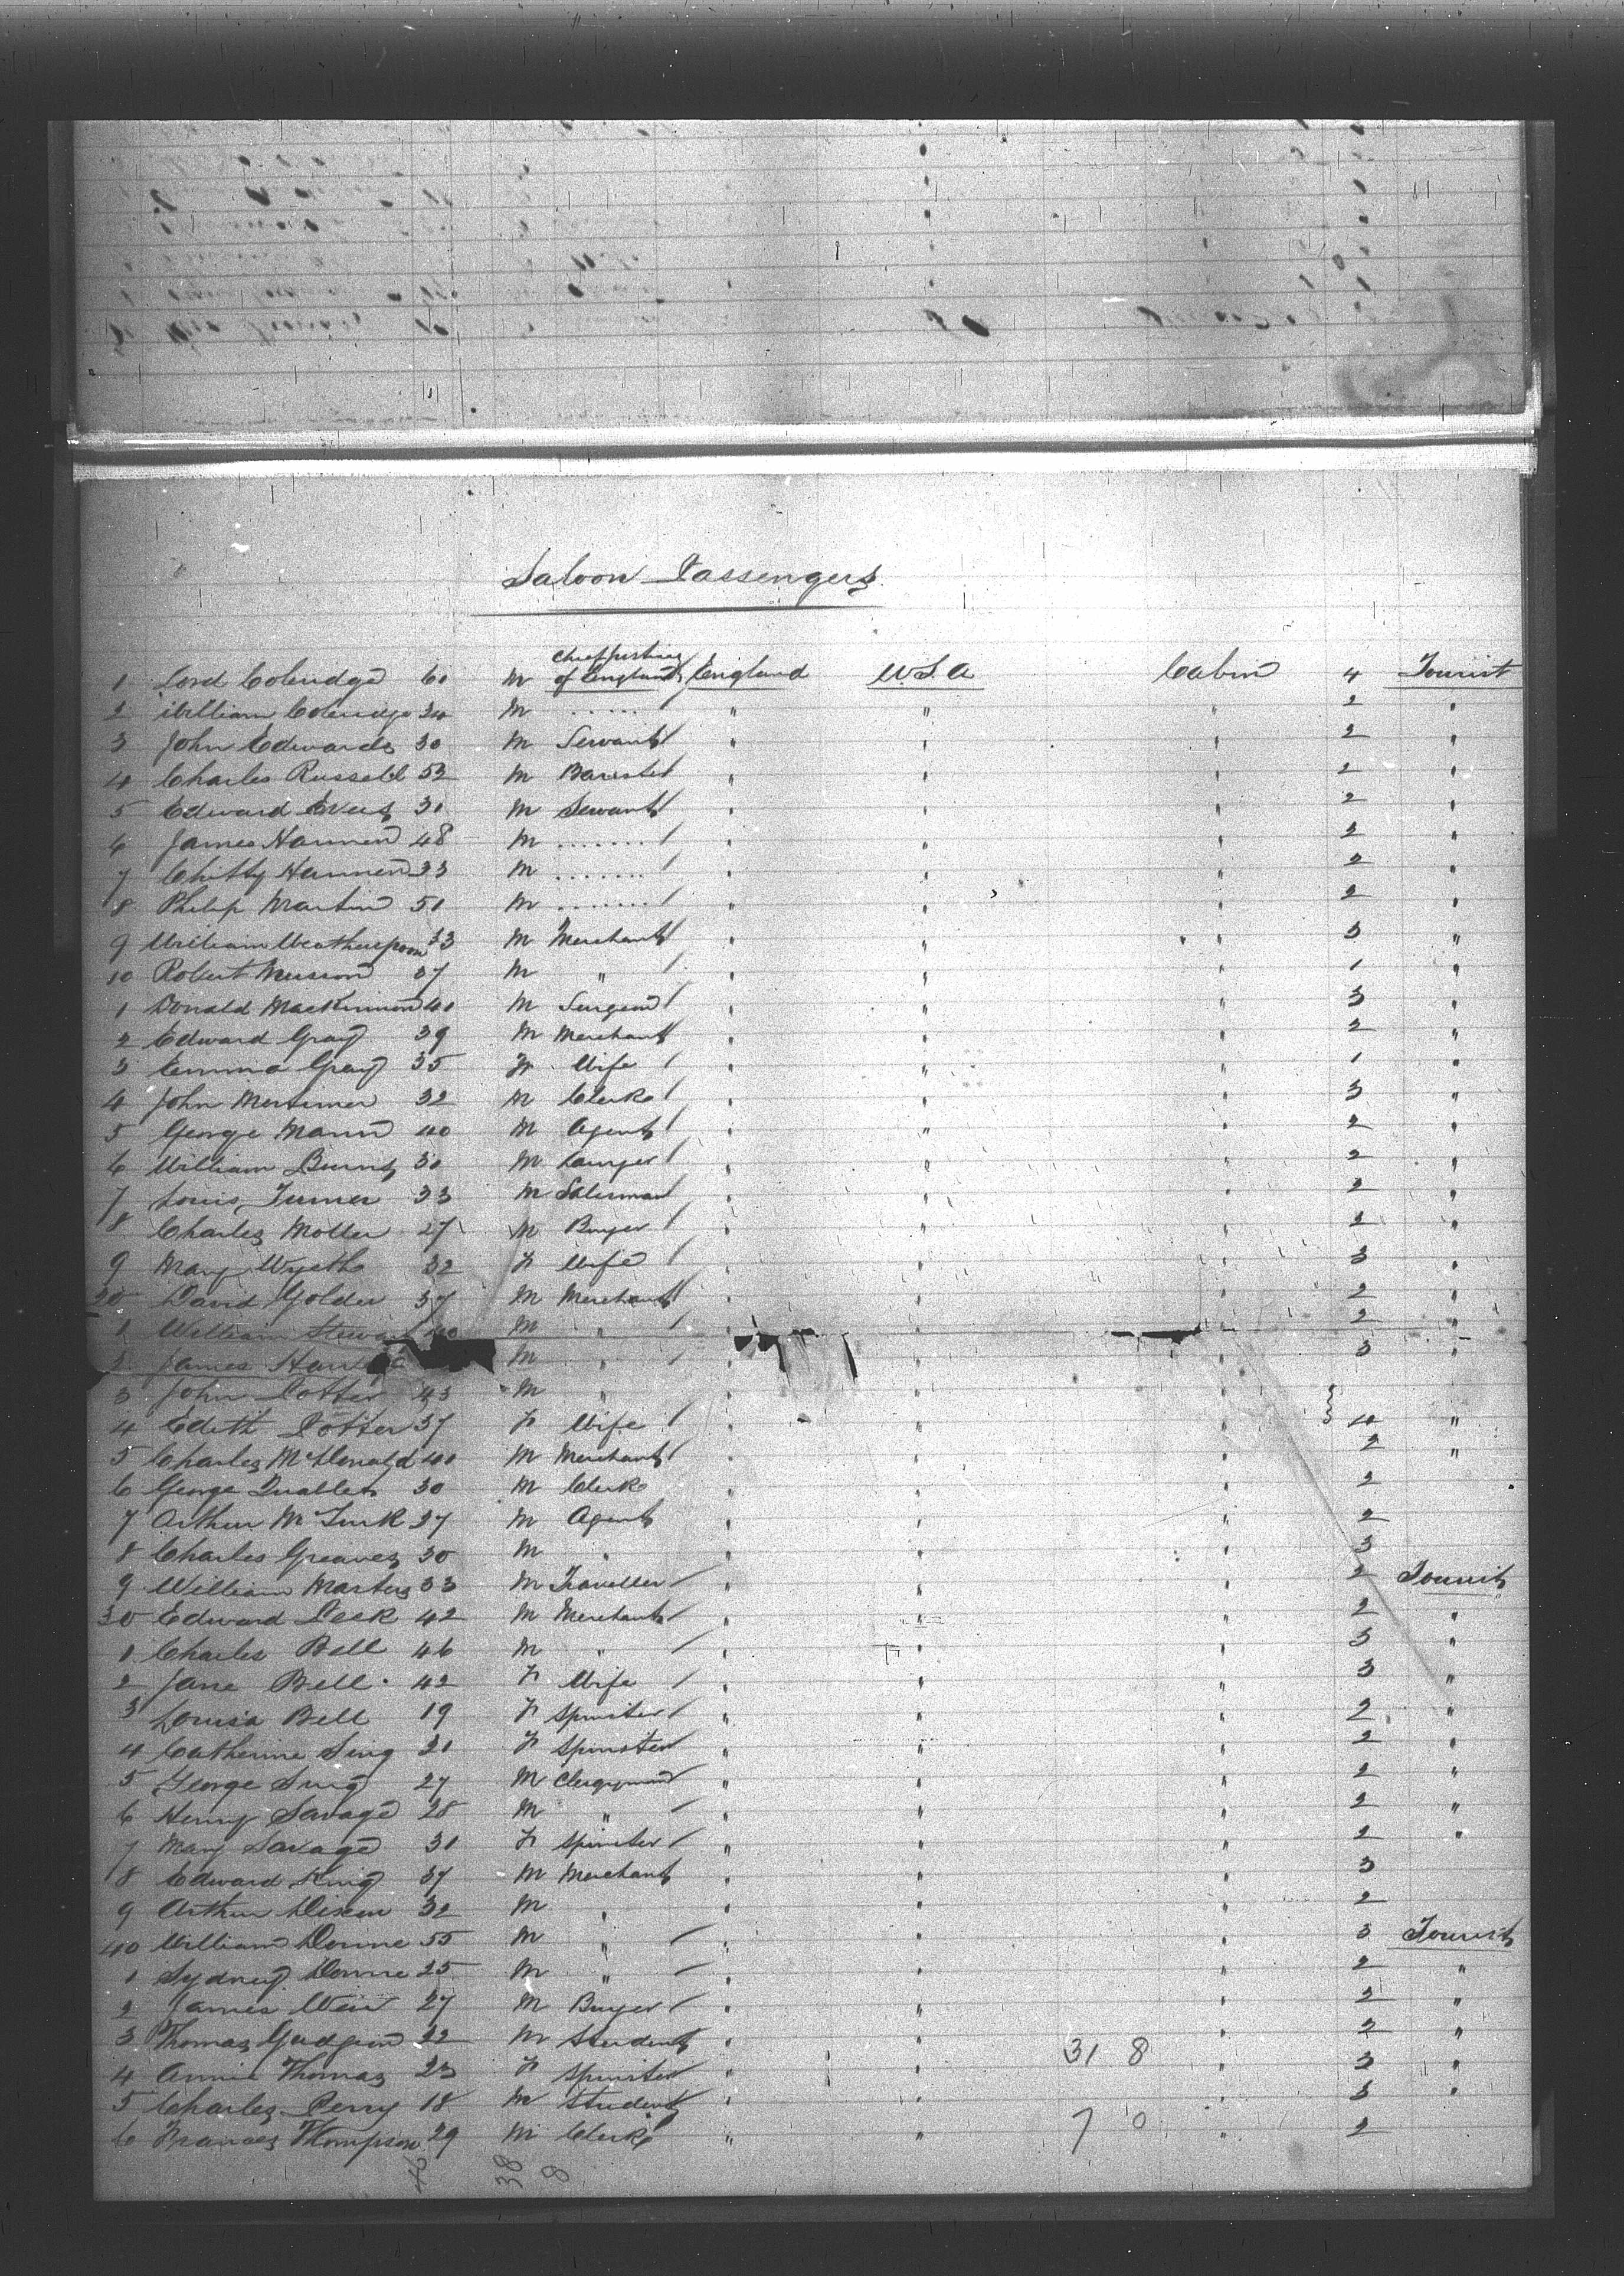 Saloon Passengers
1 Lord Coleridge 60 M Chief Justice of England England U.S.A Cabin 4 Tourist
2 William Coleridge M ...... " " " 2 "
3 John Edwards 30 M Servant " " " 2 "
4 Charles Russell 52 M Barister " " " 2 "
5 Edward 31 M Servant " " " 2 "
6 James Hannen 48 M ....... " " " 2 "
7 Chitty Hannen 23 M ....... " " " 2 "
8 Philip Martin 51 M ....... " " " 2 "
9 William Weatherspoon 33 M Merchant " " " 3 "
10 Robert 37 M " " " " 1 "
1 Donald MacKinnon 40 M Surgeon " " " 3 "
2 Edward Gray 39 M Merchant " " " 2 "
3 Emma Gray 35 F Wife " " " 1 "
4 John Mortimer 32 M Clerk " " " 3 "
5 George Mann 40 M Agent " " " 2 "
6 William Burns 30 M Lawyer " " " 2 "
7 Louis Turner 33 M Salesman " " " 2 "
8 Charles Moller 27 M Buyer " " " 2 "
9 Mary Wyeth 32 F Wife " " " 3 "
20 David Golder 37 M Merchant " " " 2 "
1 William 40 M " " " " 2 "
2 James M " " " " 3 "
3 John Potter 43 M " " " "
4 Edith Potter 37 F Wife " " " 4 "
5 Charles McDonald 40 M Merchant " " " 2 "
6 George 30 M Clerk " " " 2
7 Arthur McTurk 37 M Agent " " " 2
8 Charles Greaves 30 M " " " " 3
9 William Masters 33 M Traveller " " " 2 Tourist
30 Edward Peek 42 M Merchant " " " 2 "
1 Charles Bell 46 M " " " " 3 "
2 Jane Bell 42 F Wife " " " 3 "
3 Louisa Bell 19 F Spinster " " " 2 "
4 Catherine Sing 21 F Spinster " " " 2 "
5 George Sing 27 M Clergyman " " " 2 "
6 Henry Savage 28 M " " " " 2 "
7 Mary Savage 31 F Spinster " " " 2 "
8 Edward King 37 M Merchant " " " 3
9 Arthur Dixon 32 M " " " " 2
40 William Donne 55 M " " " " 3 Tourist
1 Sydney Donne 25 M " " " " 2 "
2 James Weir 27 M Buyer " " " 2 "
3 Thomas Gudgeon 22 M Student " " " 2 "
31 8
4 Annie Thomas 23 F Spinster " " " 3 "
5 Charles Perry 18 M Student " " " 3 "
7 0
6 Frances Thompson 29 M Clerk " " " 2
46 38 8